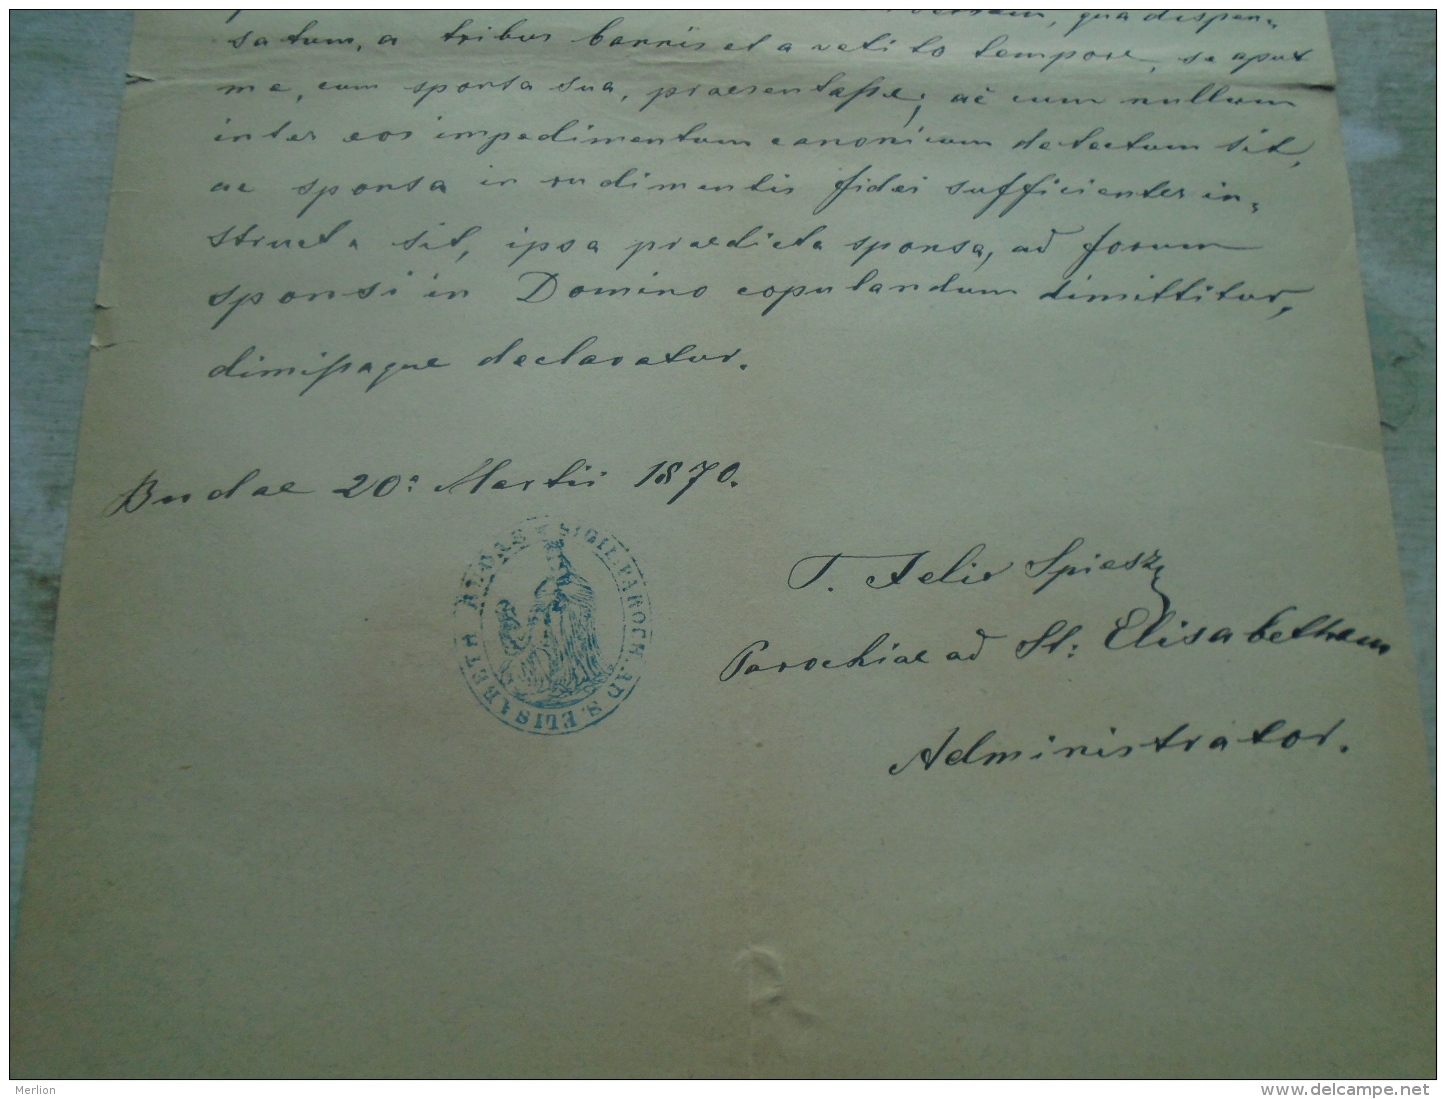 qua dispen=
satum, a tribus bannis et a vetito tempore, se aput
me, cum sponsa sua, praesentasse; ac cum nullum
inter eos impedimentum canonicum detectum sit,
ac sponsa in rudimentis fidei sufficienter in=
structa sit, ipsa praedicta sponsa, ad forum
sponsi in Domino copulandum dimittitur,
dimissaque declaratur.
Budae 20a Martii 1870.
SIGIL. PAROCH. AD S. ELISABETH BUDAE
T. Felix Spiesz
Parochiae ad St: Elisabetham
Administrator.
Merlion
www.delcampe.net